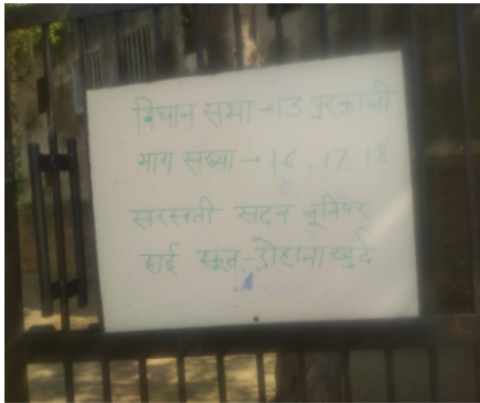 विधान सभा → 13 पुरकाजी
भाग संख्या → 16, 17, 18
सरस्वती सदन जूनियर
हाई स्कूल - रोहाना खुर्द